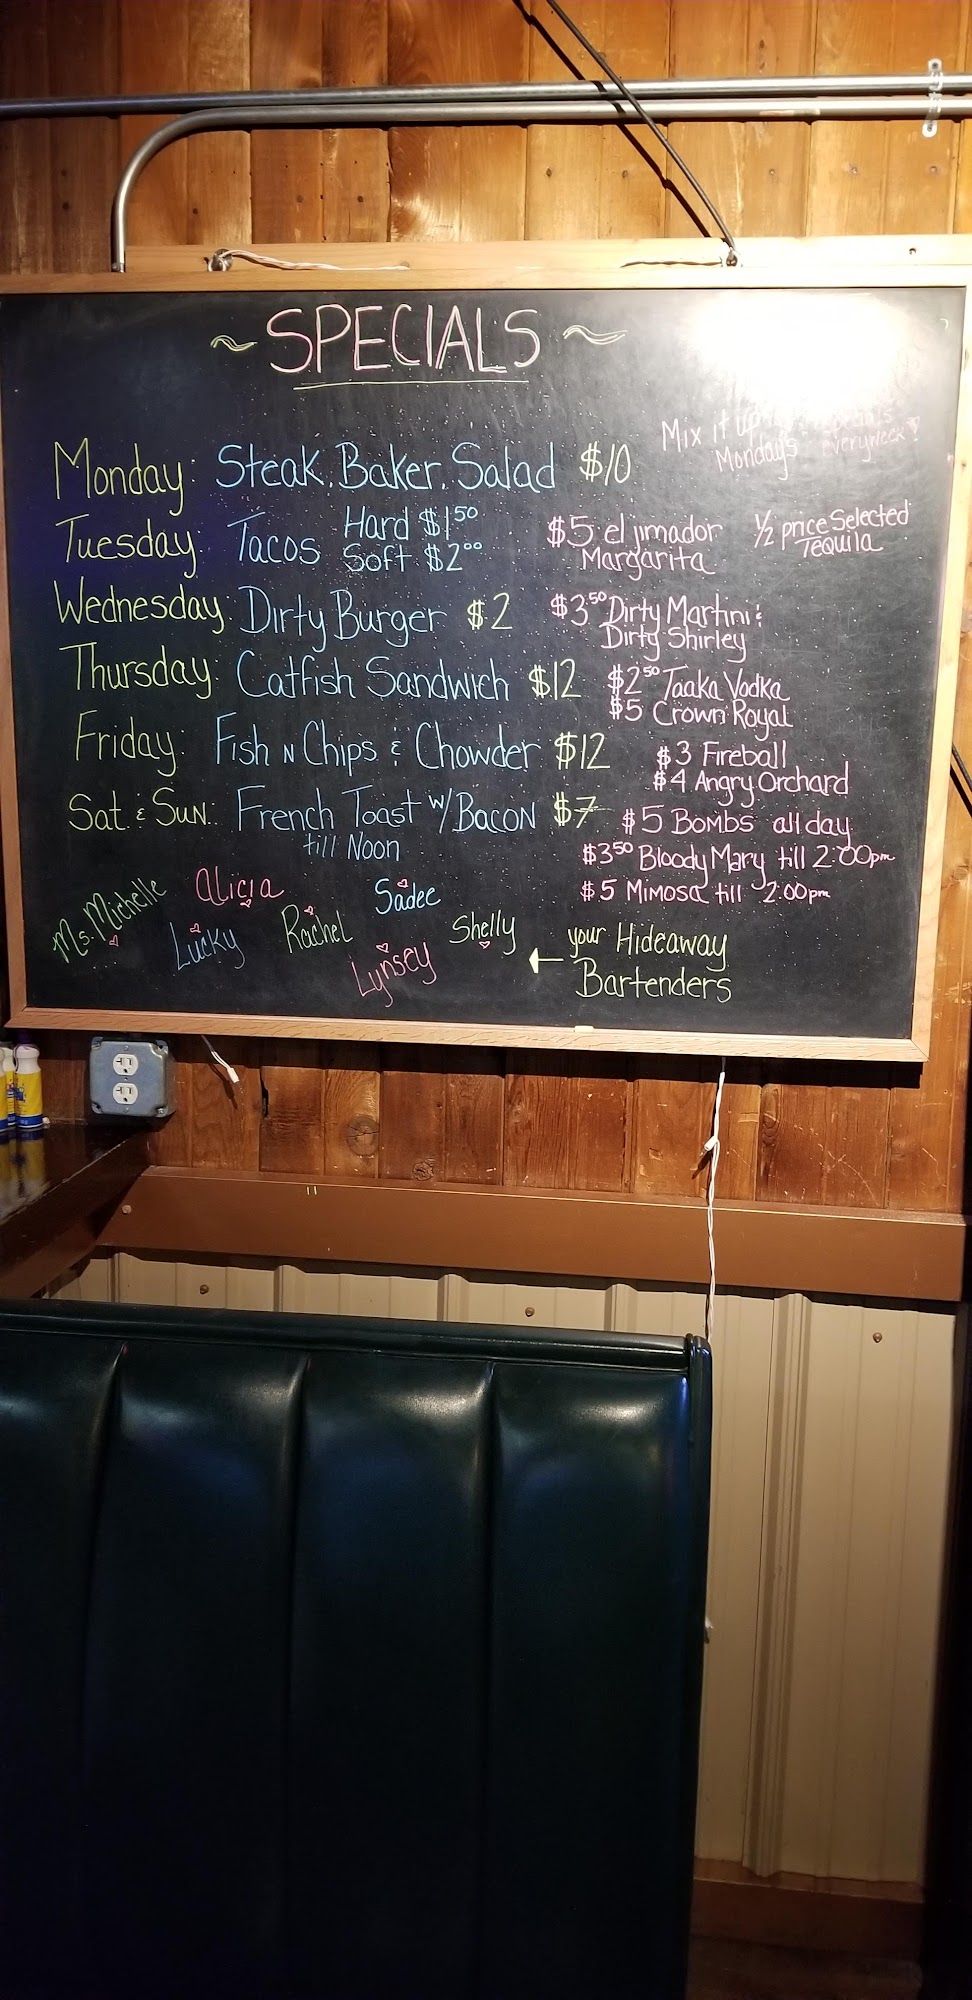 ~ SPECIALS ~
Mix it up
Mondays everyweek!
Monday: Steak, Baker, Salad $10
Tuesday: Tacos Hard $1.50
Soft $2.00
$5 el jimador
Margarita
1/2 price Selected
Tequila
Wednesday: Dirty Burger $2
$3.50 Dirty Martini &
Dirty Shirley
Thursday: Catfish Sandwich $12
$2.50 Taaka Vodka
$5 Crown Royal
Friday: Fish N Chips & Chowder $12
$3 Fireball
$4 Angry Orchard
Sat. & Sun: French Toast w/ Bacon $7
till Noon
$5 Bombs all day
$3.50 Bloody Mary till 2:00pm
$5 Mimosa till 2:00pm
Ms. Michelle
Alicia
Lucky
Rachel
Sadee
Lynsey
Shelly
← your Hideaway
Bartenders